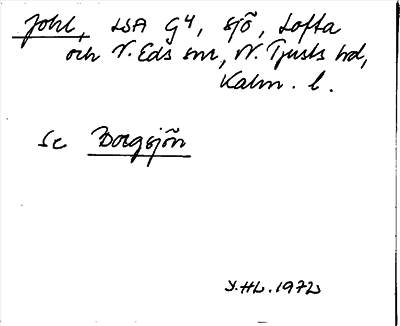 Johl, LSA G4, sjö, Lofta
och V. Eds snr, N. Tjusts hd,
Kalm. l.
Se Borgsjön
Y.HL.1972